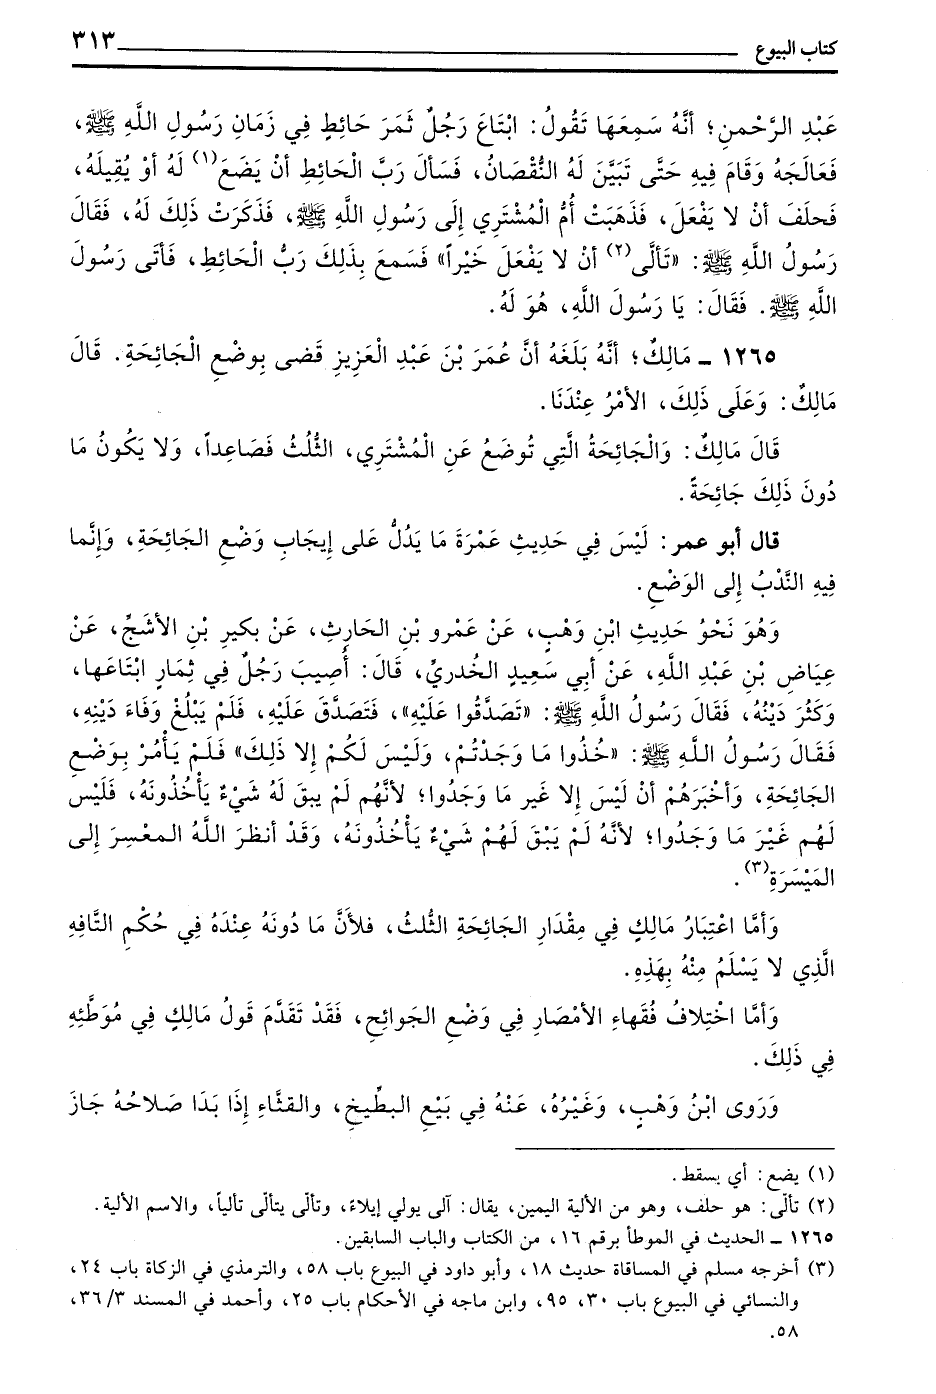 كتاب البيوع ٣١٣
عَبْدِ الرَّحْمنِ؛ أنَّهُ سَمِعَهَا تَقُولُ: ابْتَاعَ رَجُلٌ ثَمَرَ حَائِطٍ فِي زَمَانِ رَسُولِ اللَّهِ ﷺ،
فَعَالَجَهُ وَقَامَ فِيهِ حَتَّى تَبَيَّنَ لَهُ النُّقْصَانُ، فَسَألَ رَبَّ الْحَائِطِ أنْ يَضَعَ(١) لَهُ أوْ يُقِيلَهُ،
فَحلَفَ أنْ لا يَفْعَلَ، فَذَهَبَتْ أُمُّ الْمُشْتَرِي إلَى رَسُولِ اللَّهِ ﷺ، فَذَكَرَتْ ذَلِكَ لَهُ، فَقَالَ
رَسُولُ اللَّهِ ﷺ: «تَألَّى(٢) أنْ لا يَفْعَلَ خَيْراً» فَسَمعَ بِذَلِكَ رَبُّ الْحَائِطِ، فَأتَى رَسُولَ
اللَّهِ ﷺ. فَقَالَ: يَا رَسُولَ اللَّهِ، هُوَ لَهُ.
١٢٦٥ ـ مَالِكٌ؛ أنَّهُ بَلَغَهُ أنَّ عُمَرَ بْنَ عَبْدِ الْعَزِيزِ قَضى بِوضْعِ الْجَائِحَةِ. قَالَ
مَالِكٌ: وَعَلَى ذَلِكَ، الأمْرُ عِنْدَنَا.
قَالَ مَالِكٌ: وَالْجَائِحَةُ الَّتِي تُوضَعُ عَنِ الْمُشْتَرِي، الثُّلُثُ فَصَاعِداً، وَلا يَكُونُ مَا
دُونَ ذَلِكَ جَائِحَةً.
قال أبو عمر: لَيْسَ فِي حَدِيثِ عَمْرَةَ مَا يَدُلُّ عَلى إيجَابِ وَضْعِ الجَائِحَةِ، وَإنَّما
فِيهِ النَّدْبُ إلى الوَضْعِ.
وَهُوَ نَحْوُ حَدِيثِ ابْنِ وَهْبٍ، عَنْ عَمْرِو بْنِ الحَارِثِ، عَنْ بكيرِ بْنِ الأشَجِّ، عَنْ
عِيَاضِ بْنِ عَبْدِ اللَّهِ، عَنْ أبي سَعِيدٍ الخُدريِّ، قَالَ: أُصِيبَ رَجُلٌ فِي ثِمَارٍ ابْتَاعَها،
وَكَثُرَ دَيْنُهُ، فَقَالَ رَسُولُ اللَّهِ ﷺ: «تَصَدَّقُوا عَلَيْهِ»، فَتَصَدَّقَ عَلَيْهِ، فَلَمْ يَبْلُغْ وَفَاءَ دَيْنِهِ،
فَقَالَ رَسُولُ اللَّهِ ﷺ: «خُذُوا مَا وَجَدْتُمْ، وَلَيْسَ لَكُمْ إلا ذَلِكَ» فَلَمْ يَأْمُرْ بِوَضْعِ
الجَائِحَةِ، وَأخْبَرَهُمْ أنْ لَيْسَ إلا غَير مَا وَجَدُوا؛ لأنَّهُم لَمْ يبقَ لَهُ شَيْءٌ يَأْخُذُونَهُ، فَلَيْسَ
لَهُم غَيْرَ مَا وَجَدُوا؛ لأنَّهُ لَمْ يَبْقَ لَهُمْ شَيْءٌ يَأْخُذُونَهُ، وَقَدْ أنظرَ اللَّهُ المعْسِرَ إلى
المَيْسَرَةِ(٣).
وَأمَّا اعْتِبَارُ مَالِكٍ فِي مِقْدَارِ الجَائِحَةِ الثُّلثُ، فلأَنَّ مَا دُونَهُ عِنْدَهُ فِي حُكْمِ التَّافِهِ
الَّذِي لا يَسْلَمُ مِنْهُ بِهَذِهِ.
وَأمَّا اخْتِلافُ فُقَهاءِ الأمْصَارِ فِي وَضْعِ الجَوائحِ، فَقَدْ تَقَدَّمَ قَولُ مَالِكٍ فِي مُوَطَّئِهِ
فِي ذَلِكَ.
وَرَوى ابْنُ وَهْبٍ، وَغَيْرُهُ، عَنْهُ فِي بَيْعِ البطِّيخِ، والقثَّاءِ إذَا بَدَا صَلاحُهُ جَازَ
(١) يضع: أي يسقط.
(٢) تألّى: هو حلف، وهو من الألية اليمين، يقال: آلى يولي إيلاءً، وتألّى يتألّى تألياً، والاسم الألية.
١٢٦٥ ـ الحديث في الموطأ برقم ١٦، من الكتاب والباب السابقين.
(٣) أخرجه مسلم في المساقاة حديث ١٨، وأبو داود في البيوع باب ٥٨، والترمذي في الزكاة باب ٢٤،
والنسائي في البيوع باب ٣٠، ٩٥، وابن ماجه في الأحكام باب ٢٥، وأحمد في المسند ٣/ ٣٦،
٥٨.